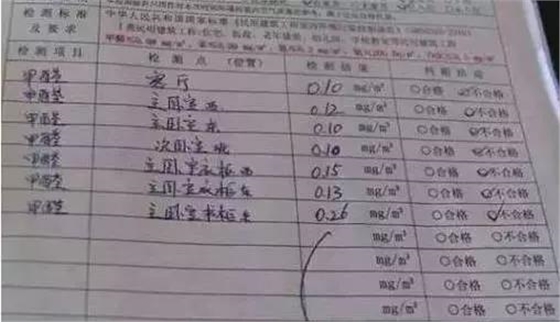 检测标准 中华人民共和国国家标准《民用建筑工程室内环境污染控制规范》
及要求 Ⅰ类民用建筑工程:住宅、医院、老年建筑、幼儿园、学校教室等民用建筑工程
检测项目 检测点(位置) 检测结果 判断结论
甲醛 客厅 0.10 mg/m³ ○合格 ☑不合格
甲醛 主卧室西 0.12 mg/m³ ○合格 ☑不合格
甲醛 主卧室东 0.10 mg/m³ ○合格 ☑不合格
甲醛 次卧室 0.10 mg/m³ ○合格 ☑不合格
甲醛 主卧室衣柜西 0.15 mg/m³ ○合格 ☑不合格
甲醛 主卧室衣柜东 0.13 mg/m³ ○合格 ☑不合格
甲醛 主卧室书柜东 0.26 mg/m³ ○合格 ☑不合格
mg/m³ ○合格 ○不合格
mg/m³ ○合格 ○不合格
mg/m³ ○合格 ○不合格
mg/m³ ○合格 ○不合格